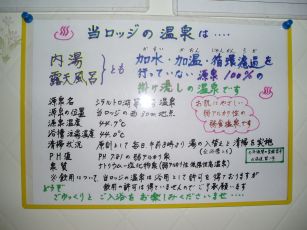 当ロッジの温泉は‥‥
内湯
露天風呂
とも
加水・加温・循環濾過を
行っていない 源泉100%の
掛け流しの温泉です
源泉名
源泉の位置 当ロッジの西 30m地点
源泉温度 44.7℃
浴槽 温度 42℃
清掃状況 原則として毎日 午前 時より 湯の入替えと清掃を実施
PH値 PH 7.81の弱アルカリ泉
泉質 ナトリウム-塩化物泉(弱アルカリ性低張性高温泉)
お肌にやさしい
弱アルカリ性の
温泉です
※飲用について 当ロッジの温泉は浴用として許可を得ておりますが
飲用の許可は得ていませんのでご了承願います
どうぞ
ごゆっくりとご入浴をお楽しみくださいませ